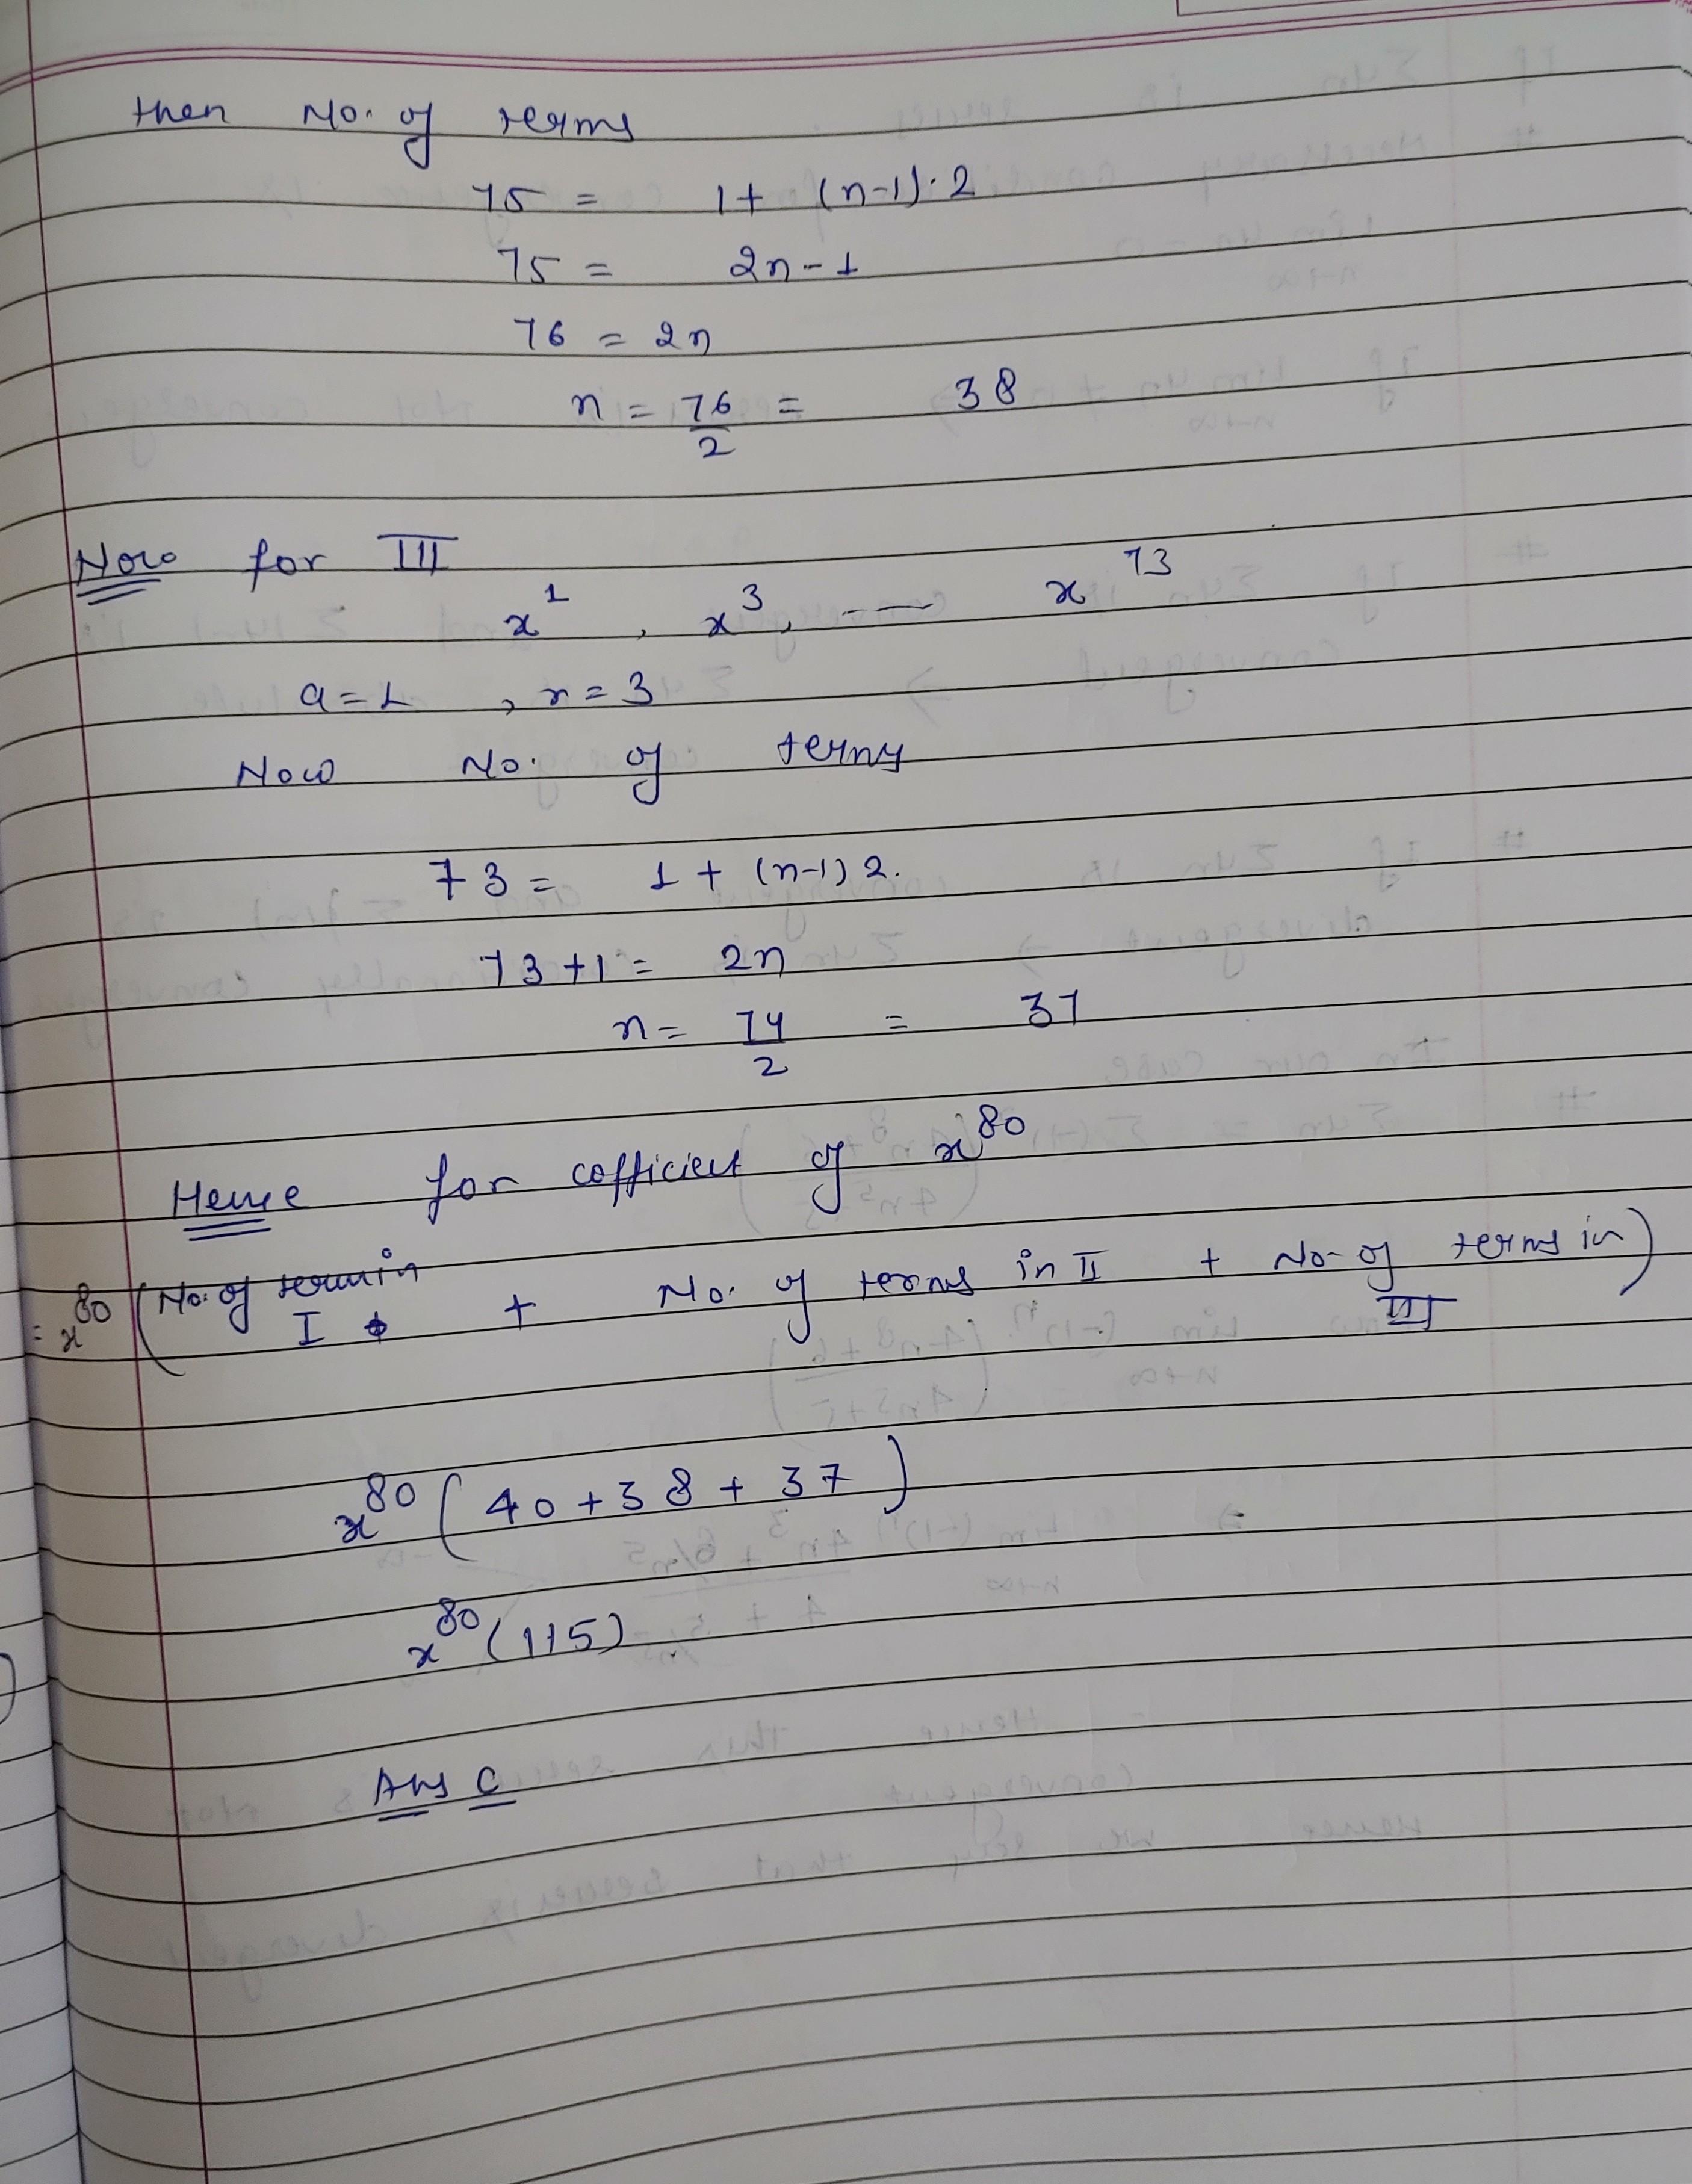 then No. of terms
75 = 1 + (n-1).2
75 = 2n - 1
76 = 2n
n = 76/2 = 38
Now for III
x^1, x^3, --- x^73
a = 1, r = 3
Now No. of terms
73 = 1 + (n-1)2.
73 + 1 = 2n
n = 74/2 = 37
Hence for cofficient of x^80
= x^80 (No. of term in I + No. of terms in II + No. of terms in III)
x^80 (40 + 38 + 37)
x^80 (115)
Ans C